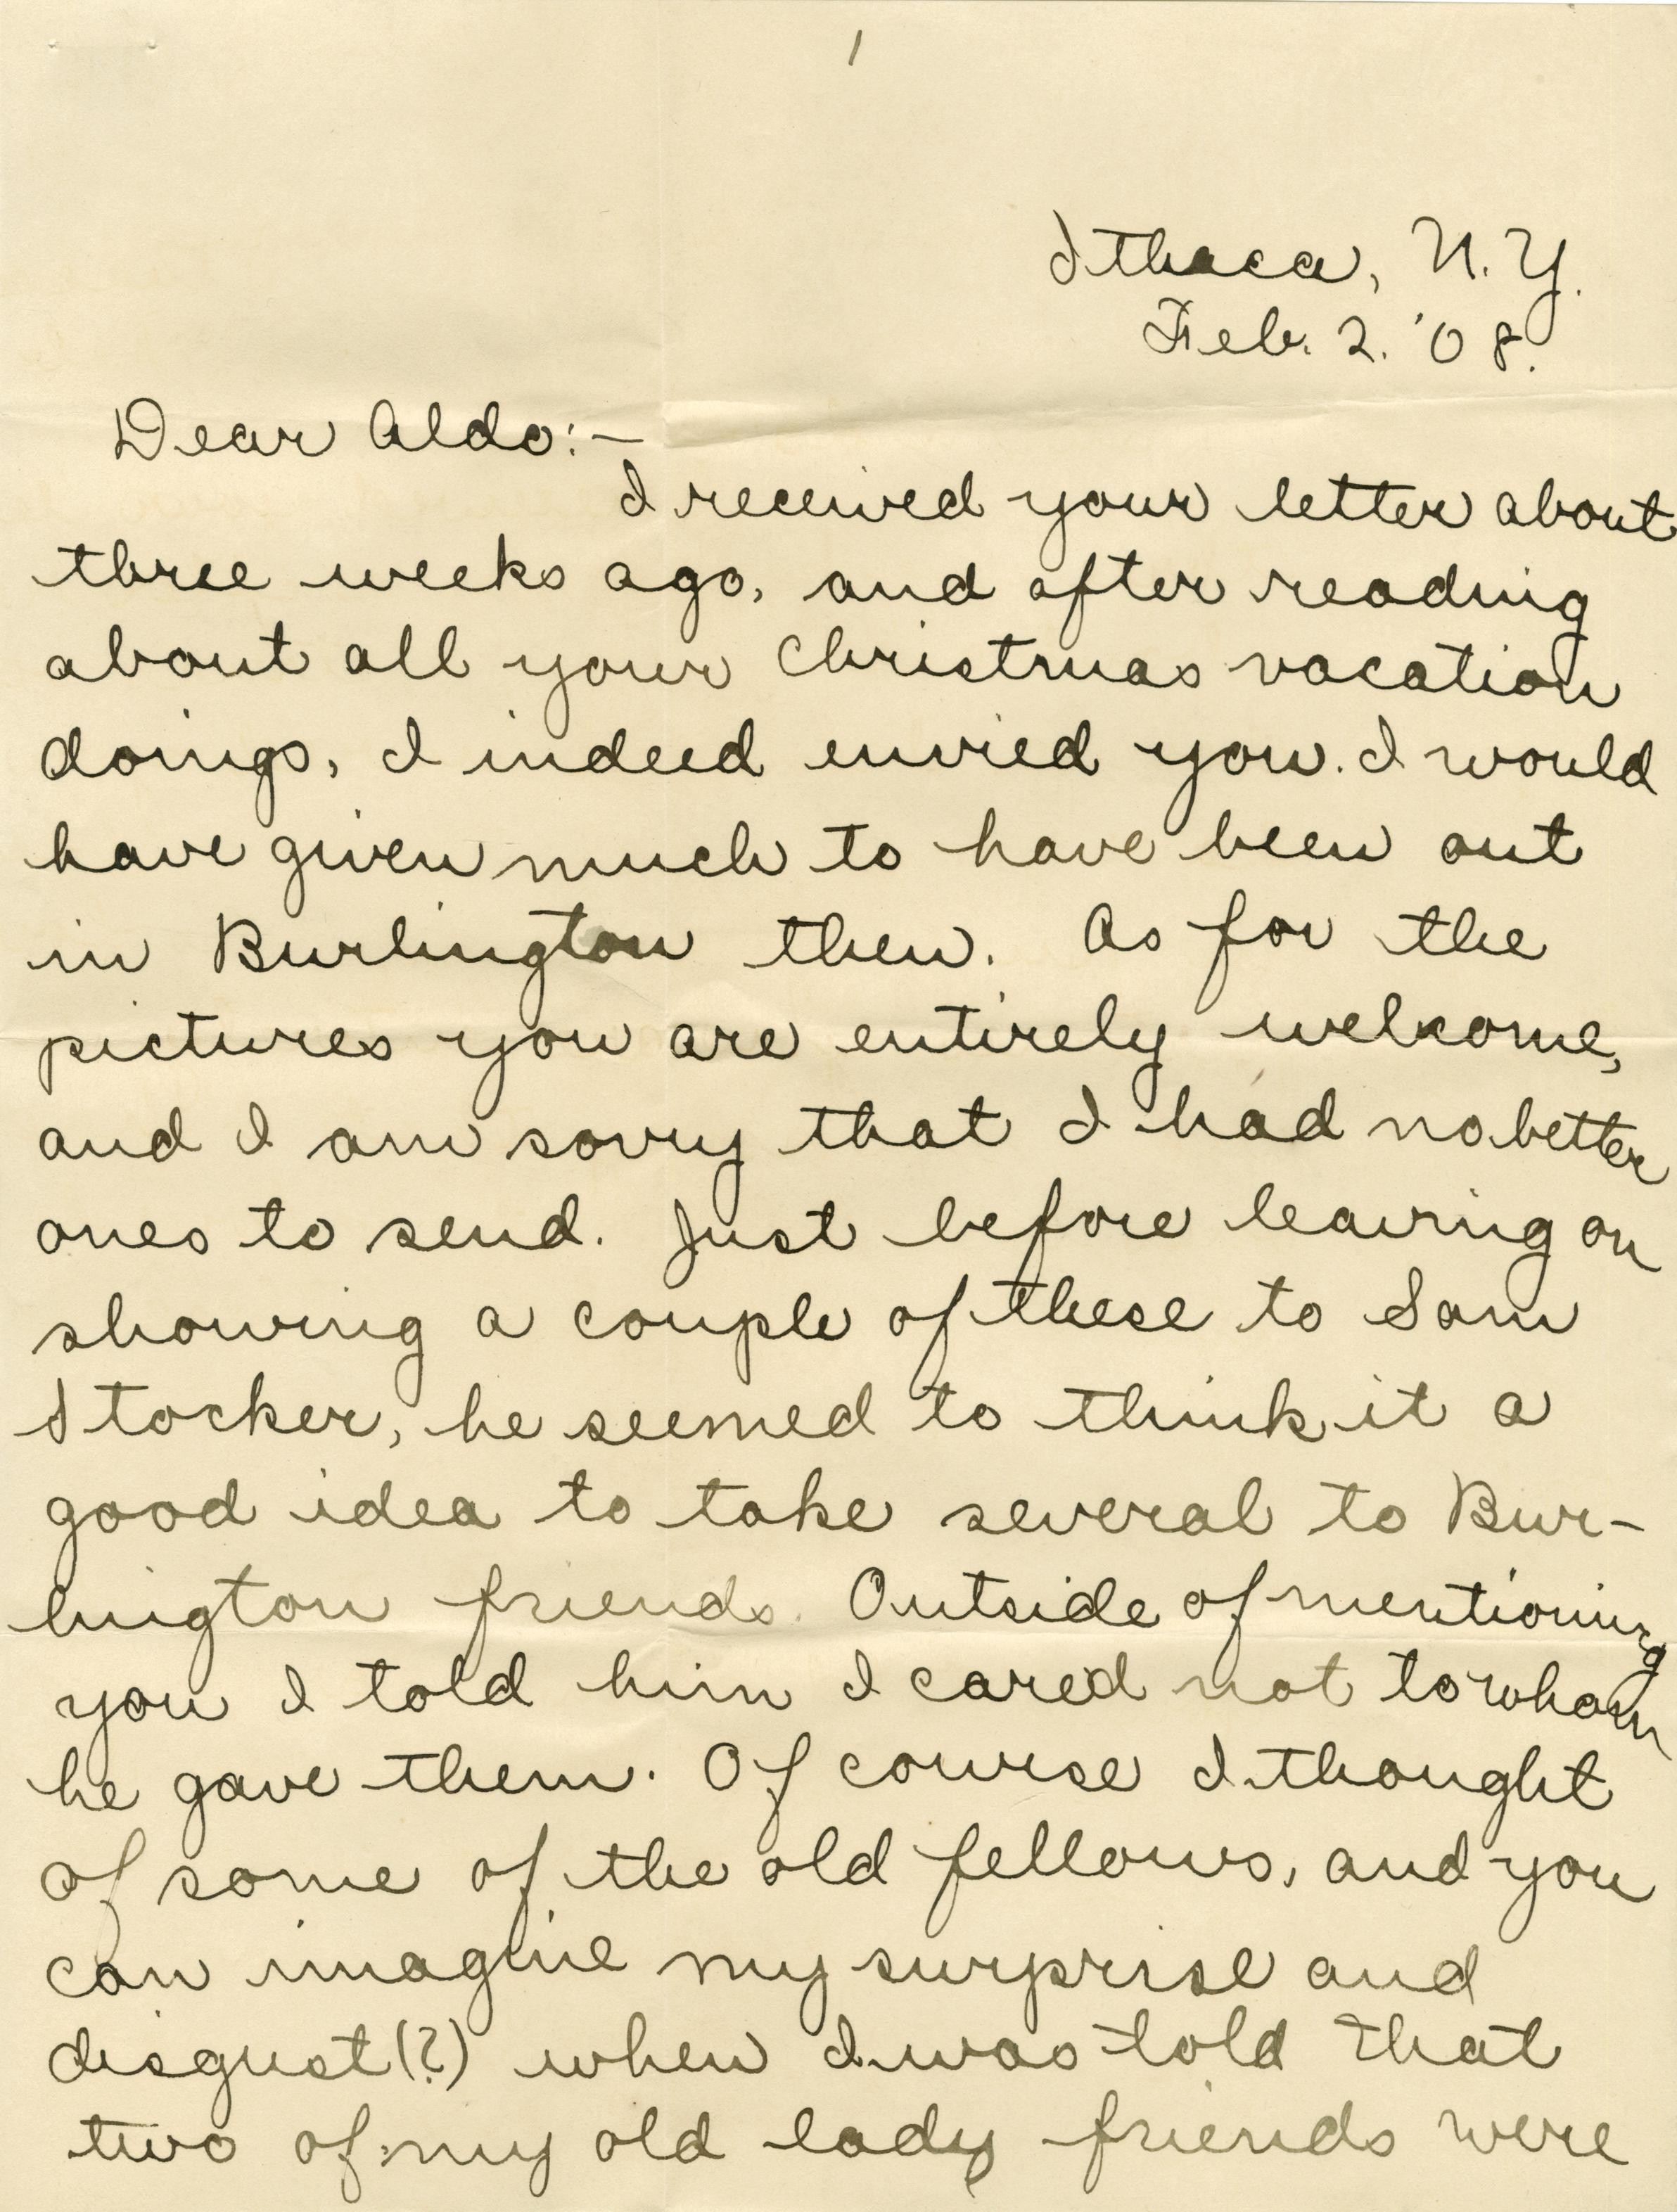 1
Ithaca, N.Y.
Feb. 2. '08.
Dear Aldo:—
I received your letter about
three weeks ago, and after reading
about all your Christmas vacation
doings, I indeed envied you. I would
have given much to have been out
in Burlington then. As for the
pictures you are entirely welcome,
and I am sorry that I had no better
ones to send. Just before leaving on
showing a couple of these to Sam
Stocker, he seemed to think it a
good idea to take several to Bur-
lington friends. Outside of mentioning
you I told him I cared not to whom
he gave them. Of course I thought
of some of the old fellows, and you
can imagine my surprise and
disgust(?) when I was told that
two of my old lady friends were